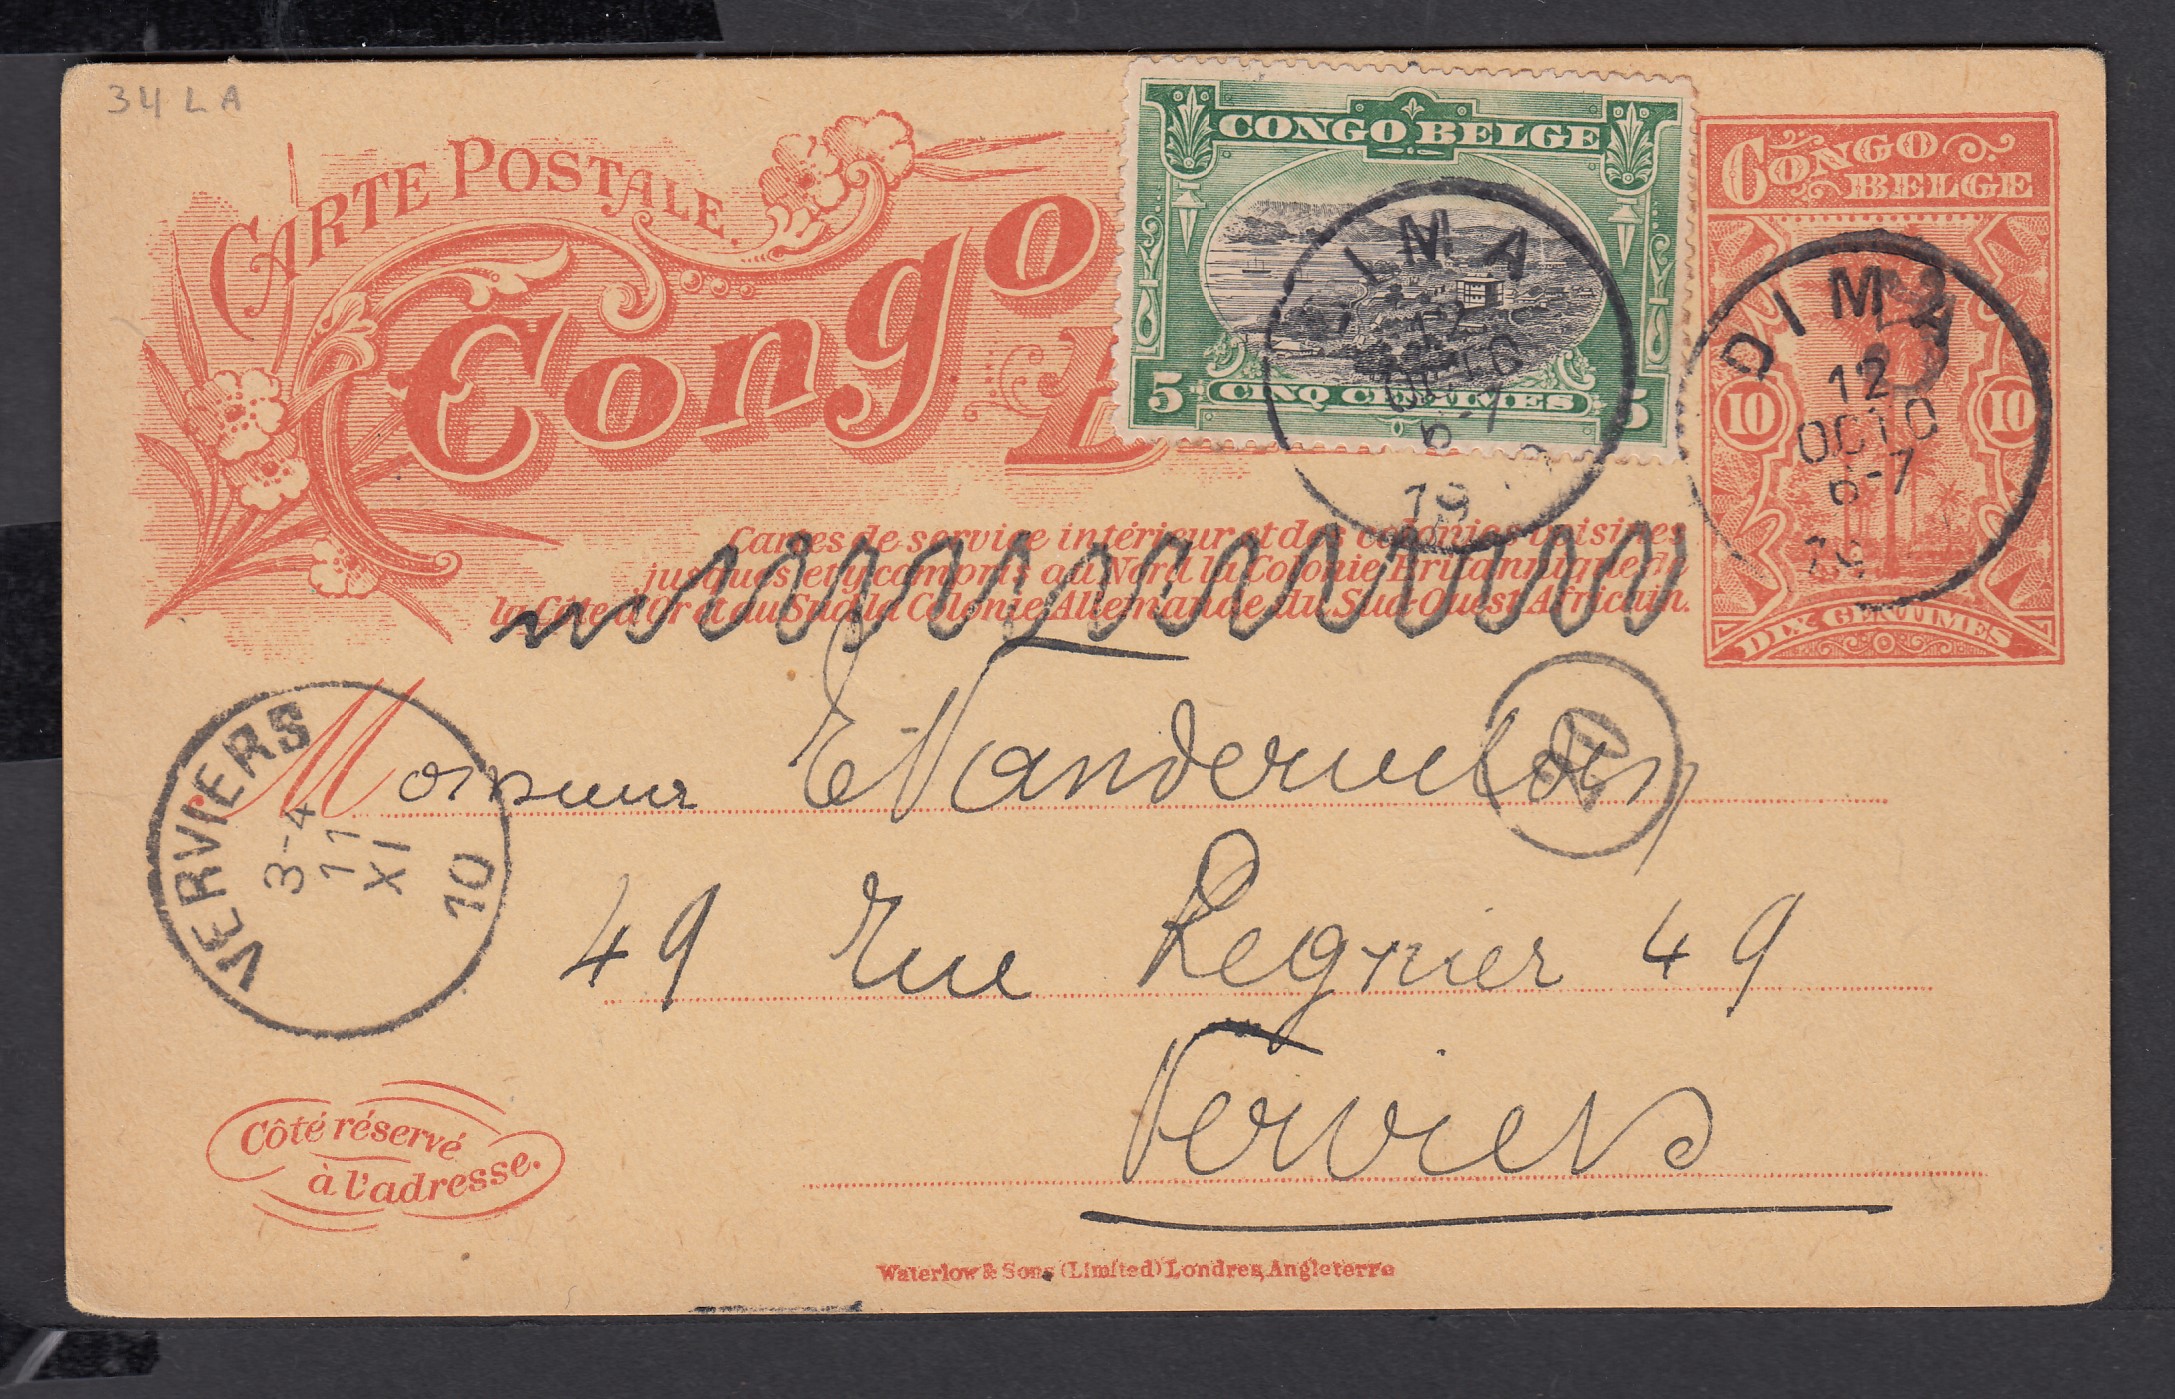 34 L A
CARTE POSTALE.
Congo
B
CONGO BELGE
5 CINQ CENTIMES 5
DIMA
12
OCTO
6-7
19
CONGO
BELGE
10 10
DIX CENTIMES
DIMA
12
OCTO
6-7
19
Cartes de service intérieur et des colonies voisines
jusques et y compris au Nord la Colonie Britannique de
la Côte d'Or et au Sud la Colonie Allemande du Sud-Ouest Africain.
Monsieur E Vandervelden
49 rue Regnier 49
Verviers
VERVIERS
3-4
11
XI
10
Côté réservé
à l'adresse.
Waterlow & Sons (Limited) Londres, Angleterre